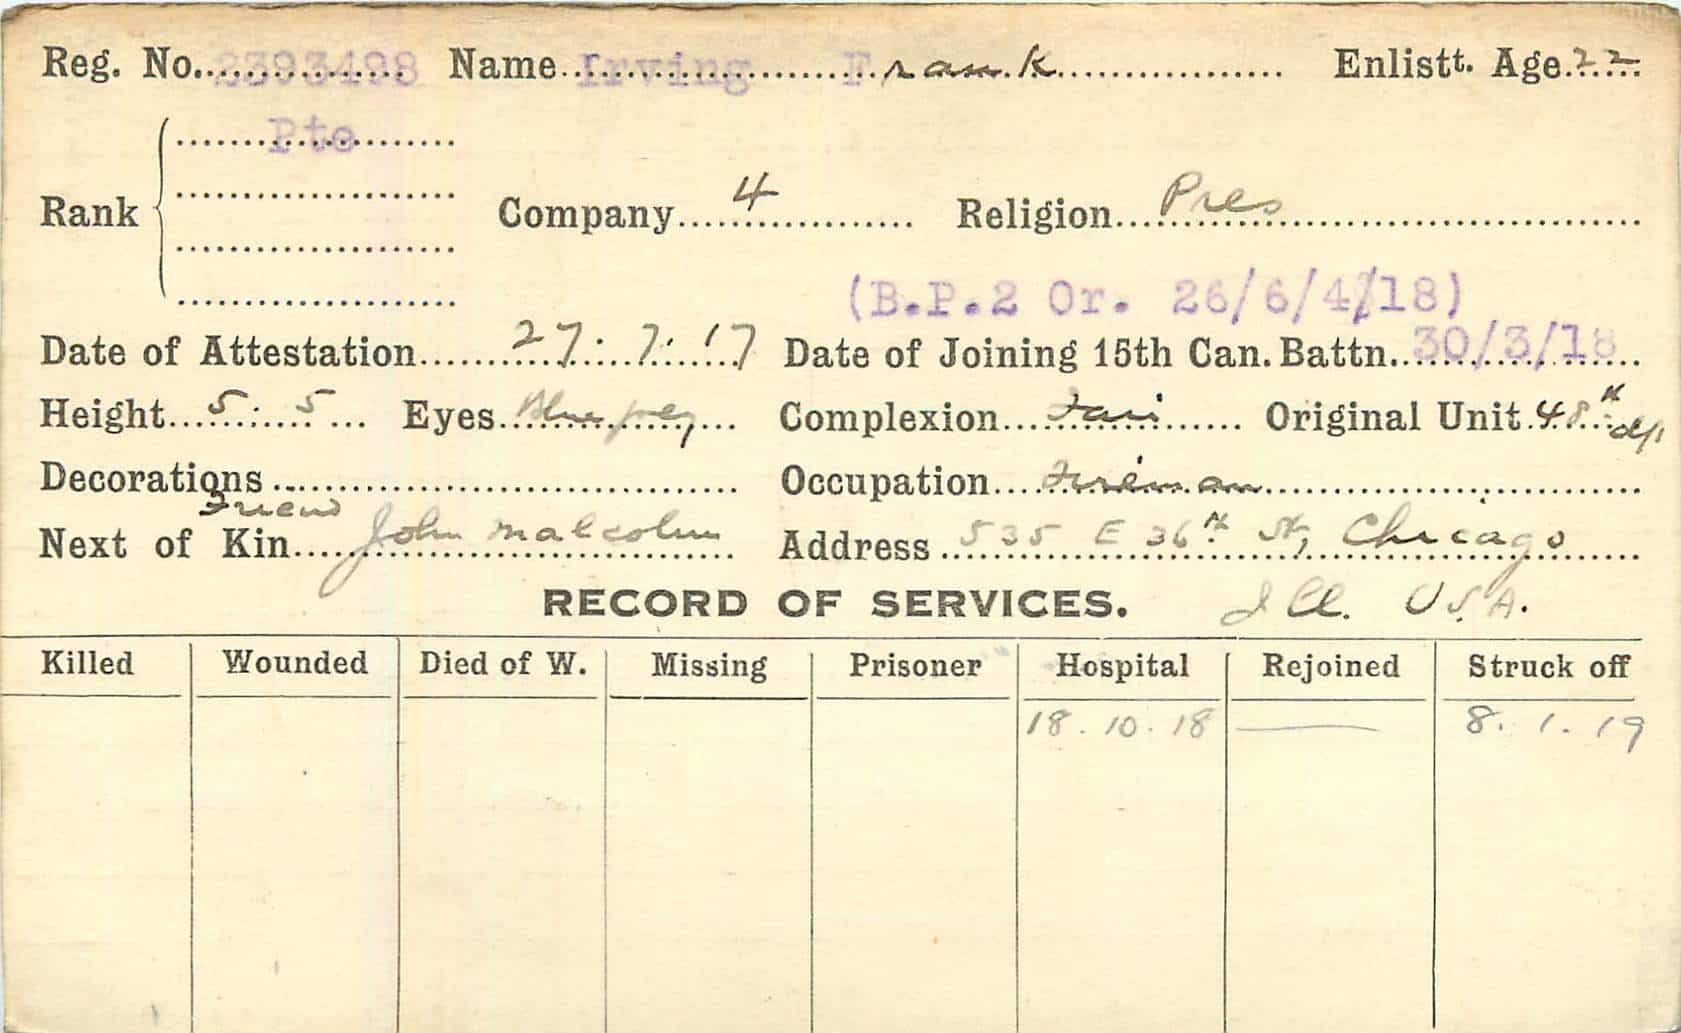 Reg. No. 2393498 Name Irving Frank Enlistt. Age 22
Pte
Rank Company 4 Religion Pres
(B.P.2 Or. 26/6/4/18)
Date of Attestation 27.7.17 Date of Joining 15th Can. Battn. 30/3/18
Height 5.5 Eyes Blue grey Complexion Fair Original Unit 48th
Decorations Occupation Fireman
Friend
Next of Kin John Malcolm Address 535 E 36th St, Chicago
RECORD OF SERVICES. Ill. U.S.A.
Killed Wounded Died of W. Missing Prisoner Hospital Rejoined Struck off
18.10.18 — 8.1.19